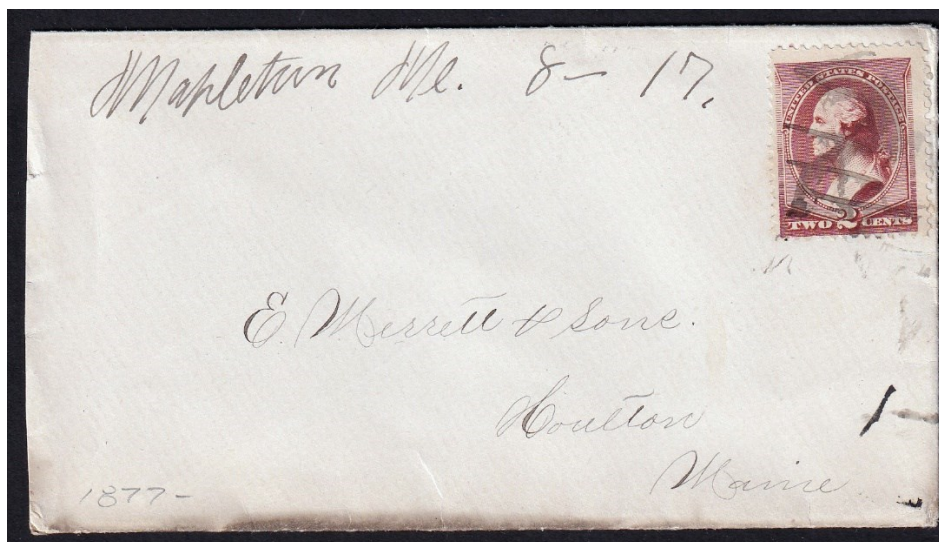 Mapleton Me. 8- 17.
UNITED STATES POSTAGE
TWO 2 CENTS
E. Merrett & Sons.
Houlton
Maine
1877-